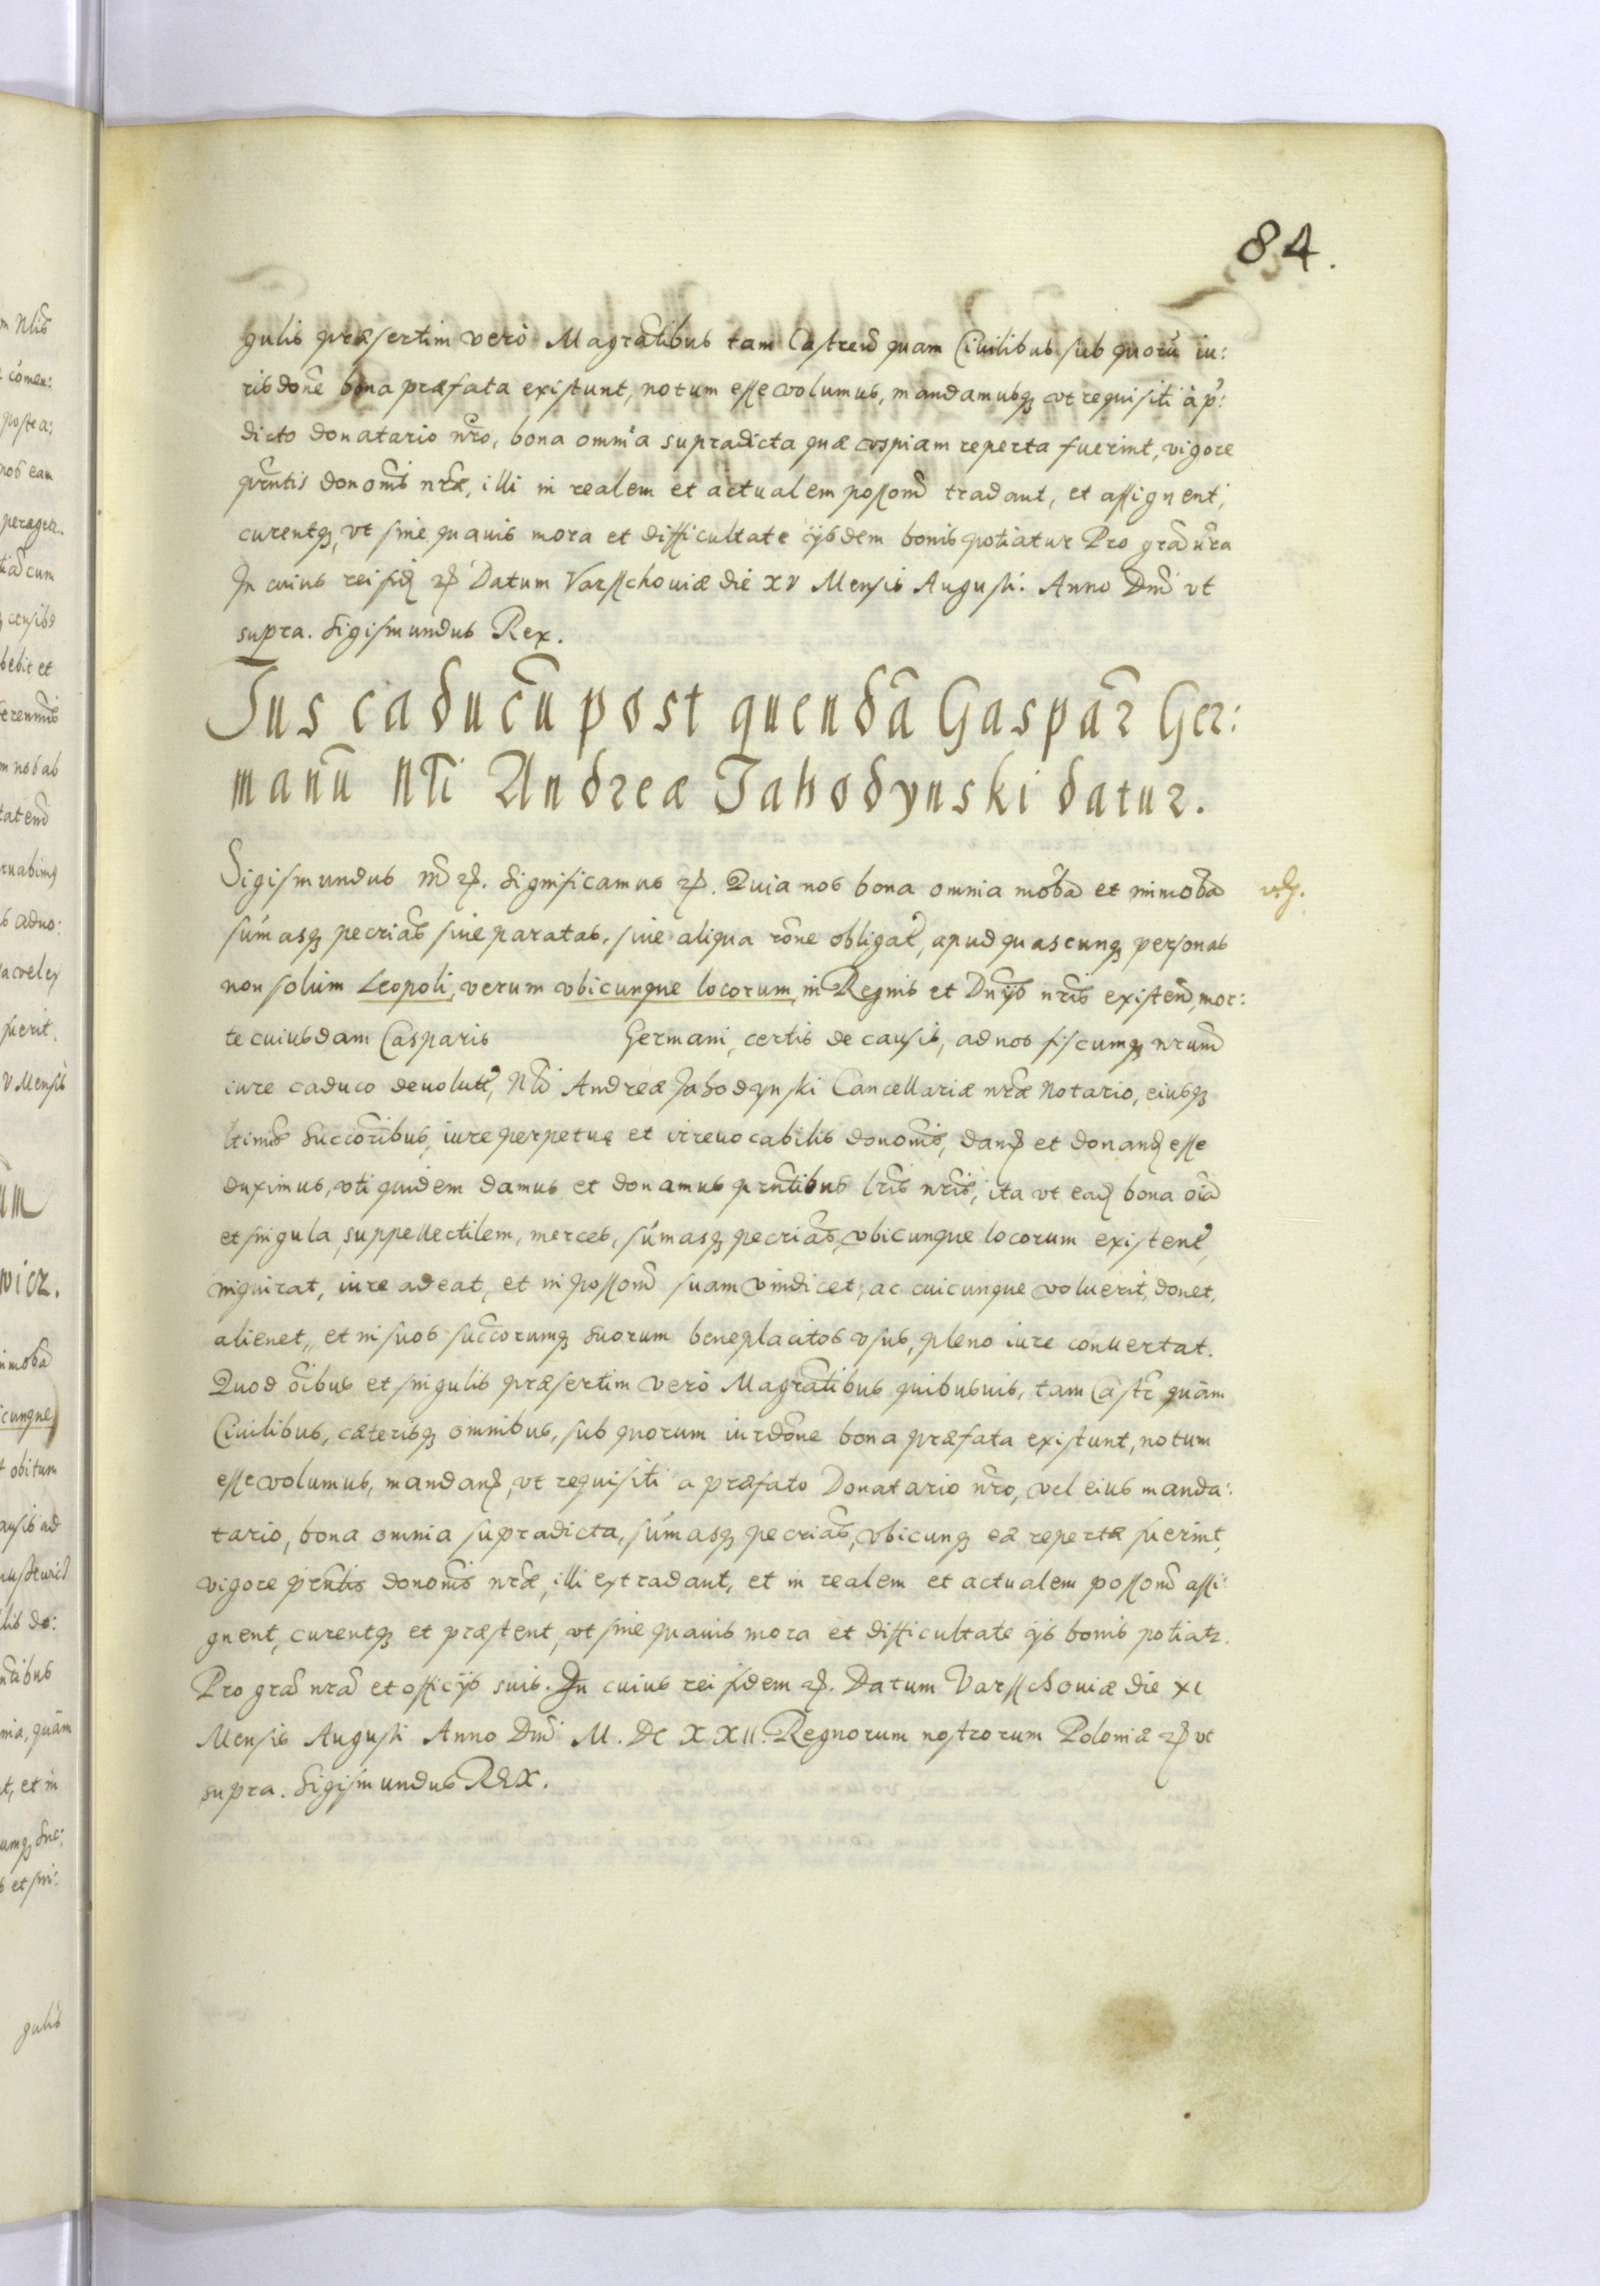 84.
gulis præsertim verò Magrãtibus tam Castren̄ quam Ciuilibus sub quorũ iu:
risdõne bona præfata existunt, notum esse volumus, mandamusq̃ vt requisiti à p̃:
dicto donatario nr̃o, bona omnia supradicta quæ vspiam reperta fuerint, vigore
pr̃ntis donõnis nr̃æ, illi in realem et actualem possonẽ tradant, et assignent,
curentq̃, vt sine quauis mora et difficultate ijsdem bonis potiatur Pro grã nr̃a
In cuius rei fid̃ etc̃ Datum Varsschouiæ die XV Mensis Augusti. Anno Dnĩ vt
supra. Sigismundus Rex.
Jus caducũ post quendã Gaspãr Ger:
manũ Nl̃i Andreæ Jahodynski datur.
Sigismundus IIĨ etc̃. Significamus etc̃. Quia nos bona omnia mobã et immobã
sum̃asq̃ pecriãs siue paratas, siue aliqua rõne obligat̃, apud quascunq̃ personas
non solùm Leopoli, verum vbicunque locorum, in Regnis et Dnĩjs nr̃is existen̄, mor:
te cuiusdam Casparis Germani, certis de causis, ad nos fiscumq̃ nrũm
iure caduco deuolut̃, Nl̃i Andreæ Jahodynski Cancellariæ nr̃æ Notario, eiusq̃
ltimĩs Succorĩbus, iure perpetuę et irreuocabilis donõnis, dand̃ et donand̃ esse
duximus, vti quidem damus et donamus prñtibus lrĩs nr̃is, ita vt ead̃ bona oĩa
et singula, suppellectilem, merces, sum̃asq̃ pecriãs, vbicunque locorum existent̃,
inquirat, iure adeat, et in possonẽ suam vindicet, ac cuicunque voluerit, donet,
alienet, et in suos succorumq̃ suorum beneplacitos vsus, pleno iure conuertat.
Quod oĩbus et singulis præsertim verò Magrãtibus quibusuis, tam Castr̃ quàm
Ciuilibus, cæterisq̃ omnibus, sub quorum iurdõne bona præfata existunt, notum
esse volumus, mandand̃, vt requisiti a præfato Donatario nr̃o, vel eius manda:
tario, bona omnia supradicta, sum̃asq̃ pecriãs, vbicunq̃ ea reperta fuerint,
vigore prñtis donõnis nr̃æ, illi extradant, et in realem et actualem possonẽ assi:
gnent, curentq̃ et præstent, vt sine quauis mora et difficultate ijs bonis potiatr.
Pro grã nr̃a et officijs suis. In cuius rei fidem etc̃. Datum Varsschouiæ die XI
Mensis Augusti Anno Dnĩ M. DC XXII. Regnorum nostrorum Poloniæ etc̃ vt
supra. Sigismundus REX.